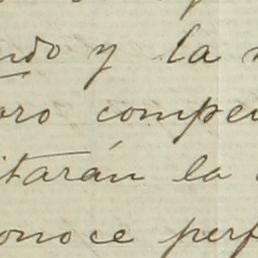 ndo y la
oro compe
itarán la
onoce perf